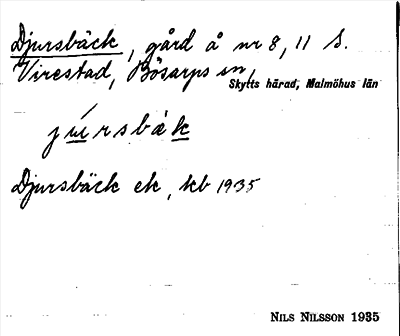 Djursbäck, gård å nr 8, 11 S.
Virestad, Bösarps sn,
Skytts härad, Malmöhus län
júrsbàk
Djursbäck ek, kb 1935
NILS NILSSON 1935